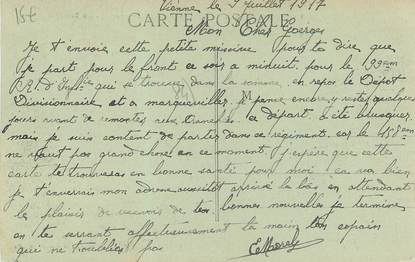 15€
Vienne, le 9 Juillet 1917
CARTE POSTALE
Mon Cher Georges
Je t'envoie cette petite missive pour te dire que
je part pour le front ce soir a minuit pour le 99eme
R.I. d'Inf^rie qui se trouve dans la somme, en repos le Dépôt
Divisionnaire, et a je pense encore y rester quelques
jours avant de remonter aux ce départ à été brusquer
mais je suis content de partir dans ce régiment car le
ne vaut pas grand chose en ce moment j'espère que cette
carte te trouveras en bonne santé pour moi ca va bien
je t'enverrais mon adresse aussitôt arrivé la bas, en attendant
le plaisir de recevoir de tes bonnes nouvelles je termine
en te serrant affectueusement la main ton copain
qui ne t'oublies pas
E Morel